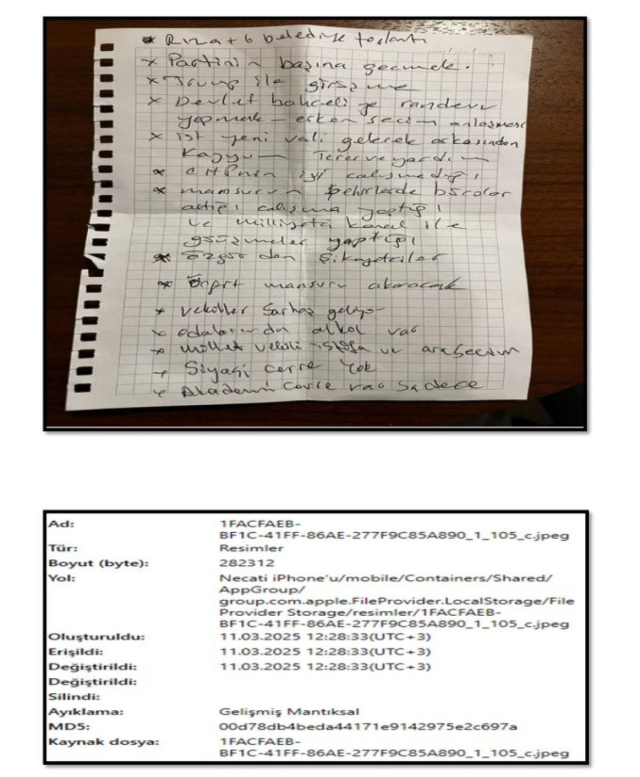 * Rıza + 6 belediye toplantı
* Partinin başına geçmek.
* Trump ile görüşme
* Devlet bahçeli ye randevu
yapmak - erken seçim anlaşması
* ist yeni vali gelecek arkasından
Kayyum Terere yardım
* CHPnin iyi çalışmadığı
* mansurun şehirlerde bürolar
açtığı çalışma yaptığı
ve milliyetçi kanal ile
görüşmeler yaptığı
* özgür den şikayetçiler
* mansuru
* vekiller Sarhoş geliyo
* odalarında alkol var
* millet vekili istifa ve araseçim
* Siyasi çevre Yok
* Akademi çevre var sadece
Ad: 1FACFAEB-
BF1C-41FF-86AE-277F9C85A890_1_105_c.jpeg
Tür: Resimler
Boyut (byte): 282312
Yol: Necati iPhone'u/mobile/Containers/Shared/
AppGroup/
group.com.apple.FileProvider.LocalStorage/File
Provider Storage/resimler/1FACFAEB-
BF1C-41FF-86AE-277F9C85A890_1_105_c.jpeg
Oluşturuldu: 11.03.2025 12:28:33(UTC+3)
Erişildi: 11.03.2025 12:28:33(UTC+3)
Değiştirildi: 11.03.2025 12:28:33(UTC+3)
Değiştirildi:
Silindi:
Ayıklama: Gelişmiş Mantıksal
MD5: 00d78db4beda44171e9142975e2c697a
Kaynak dosya: 1FACFAEB-
BF1C-41FF-86AE-277F9C85A890_1_105_c.jpeg